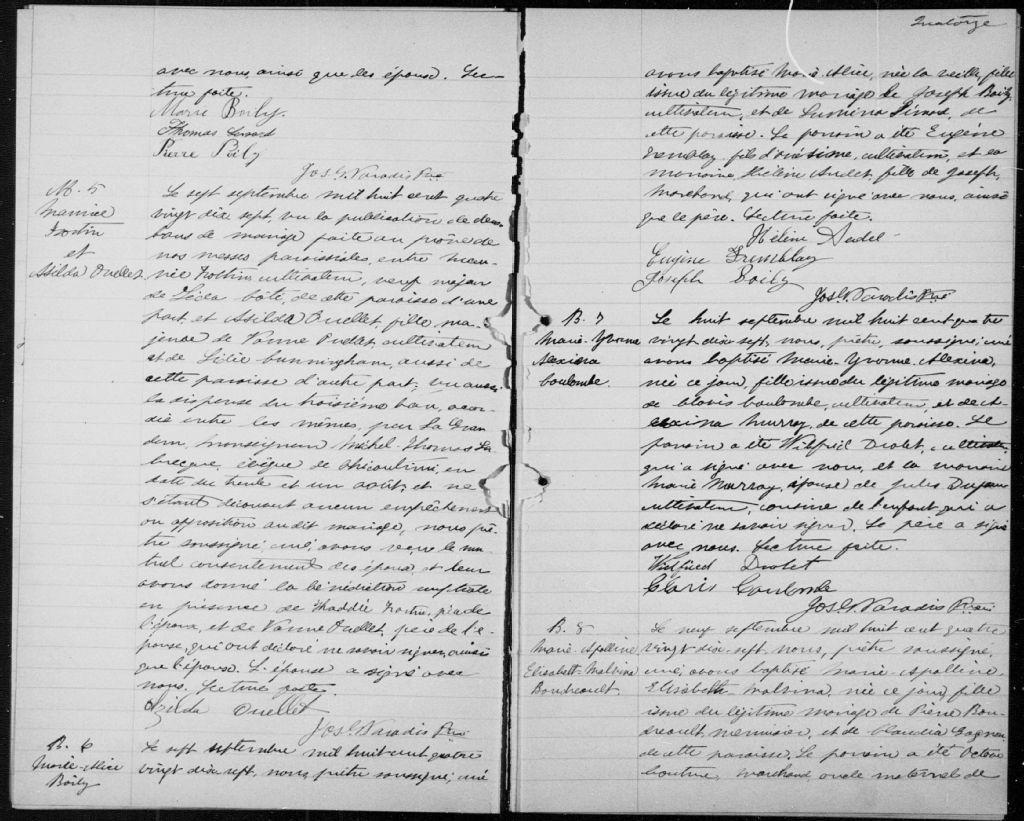 avec nous, ainsi que les épouse. Lec-
ture faite.
Marie Boily.
Thomas Simard
Pierre Boily
Jos. G. Paradis Ptre
M. 5
Maurice
Fortin
et
Asilda Ouellet
Le sept septembre mil huit cent quatre
vingt dix sept, vu la publication de deux
bans de mariage faite au prône de
nos messes paroissiales, entre Mau-
rice Fortin, cultivateur, veuf majeur
de Léda Coté, de cette paroisse d'une
part, et Asilda Ouellet, fille ma-
jeure de Vanne Ouellet, cultivateur
et de Cunningham, aussi de
cette paroisse d'autre part; vu aussi
la dispense du troisième ban, accor-
dée entre les mêmes, par Sa Gran
deur, Monseigneur Michel-Thomas La
brecque, évêque de Chicoutimi, en
date du trente et un août; et ne
s'étant découvert aucun empêchement
ou opposition audit mariage, nous prê
tre soussigné, curé avons reçu le mu
tuel consentement des époux, et leur
avons donné la bénédiction nuptiale
en présence de Thaddée Fortin, père de
l'époux, et de Vanne Ouellet, père de l'é-
pouse, qui ont déclaré ne savoir signer, ainsi
que l'époux. L'épouse a signé avec
nous. Lecture faite.
Ouellet
Jos. G. Paradis Ptre
B. 6
Marie-Alice
Boily
Le sept septembre mil huit cent quatre
vingt dix sept, nous, prêtre soussigné, curé
Quatorze
avons baptisé Marie-Alice, née la veille, fille
issue du légitime mariage de Joseph Boily,
cultivateur, et de Lumina Simard, de
cette paroisse. Le parrain a été Eugène
Tremblay, fils d'Onésime, cultivateur, et la
marraine, Hélène Audet, fille de Joseph,
marchand, qui ont signé avec nous, ainsi
que le père. Lecture faite.
Hélène Audet
Eugène Tremblay
Joseph Boily
Jos. G. Paradis Ptre
B. 7
Marie-Yvonne
Alexina
Coulombe.
Le huit septembre mil huit cent quatre
vingt dix sept, nous, prêtre, soussigné, curé
avons baptisé Marie-Yvonne-Alexina,
née ce jour, fille issue du légitime mariage
de Clovis Coulombe, cultivateur, et de Al
exina Murray, de cette paroisse. Le
parrain a été Wilfrid Drolet,
qui a signé avec nous, et la marraine
Marie Murray, épouse de Jules
cultivateur, cousine de l'enfant qui a
déclaré ne savoir signer. Le père a signé
avec nous. Lecture faite.
Wilfried Drolet
Coulombe
Jos. G. Paradis Ptre
B. 8
Marie-Apolline
Elisabeth-Malvina
Boudreault
Le neuf septembre mil huit cent quatre
vingt dix sept, nous, prêtre soussigné,
curé, avons baptisé Marie-Apolline,
Elisabeth-Malvina, née ce jour, fille
issue du légitime mariage de Pierre Bou-
dreault, menuisier, et de Claudia Gagnon
de cette paroisse. Le parrain a été Octave
Couture, marchand, oncle maternel de